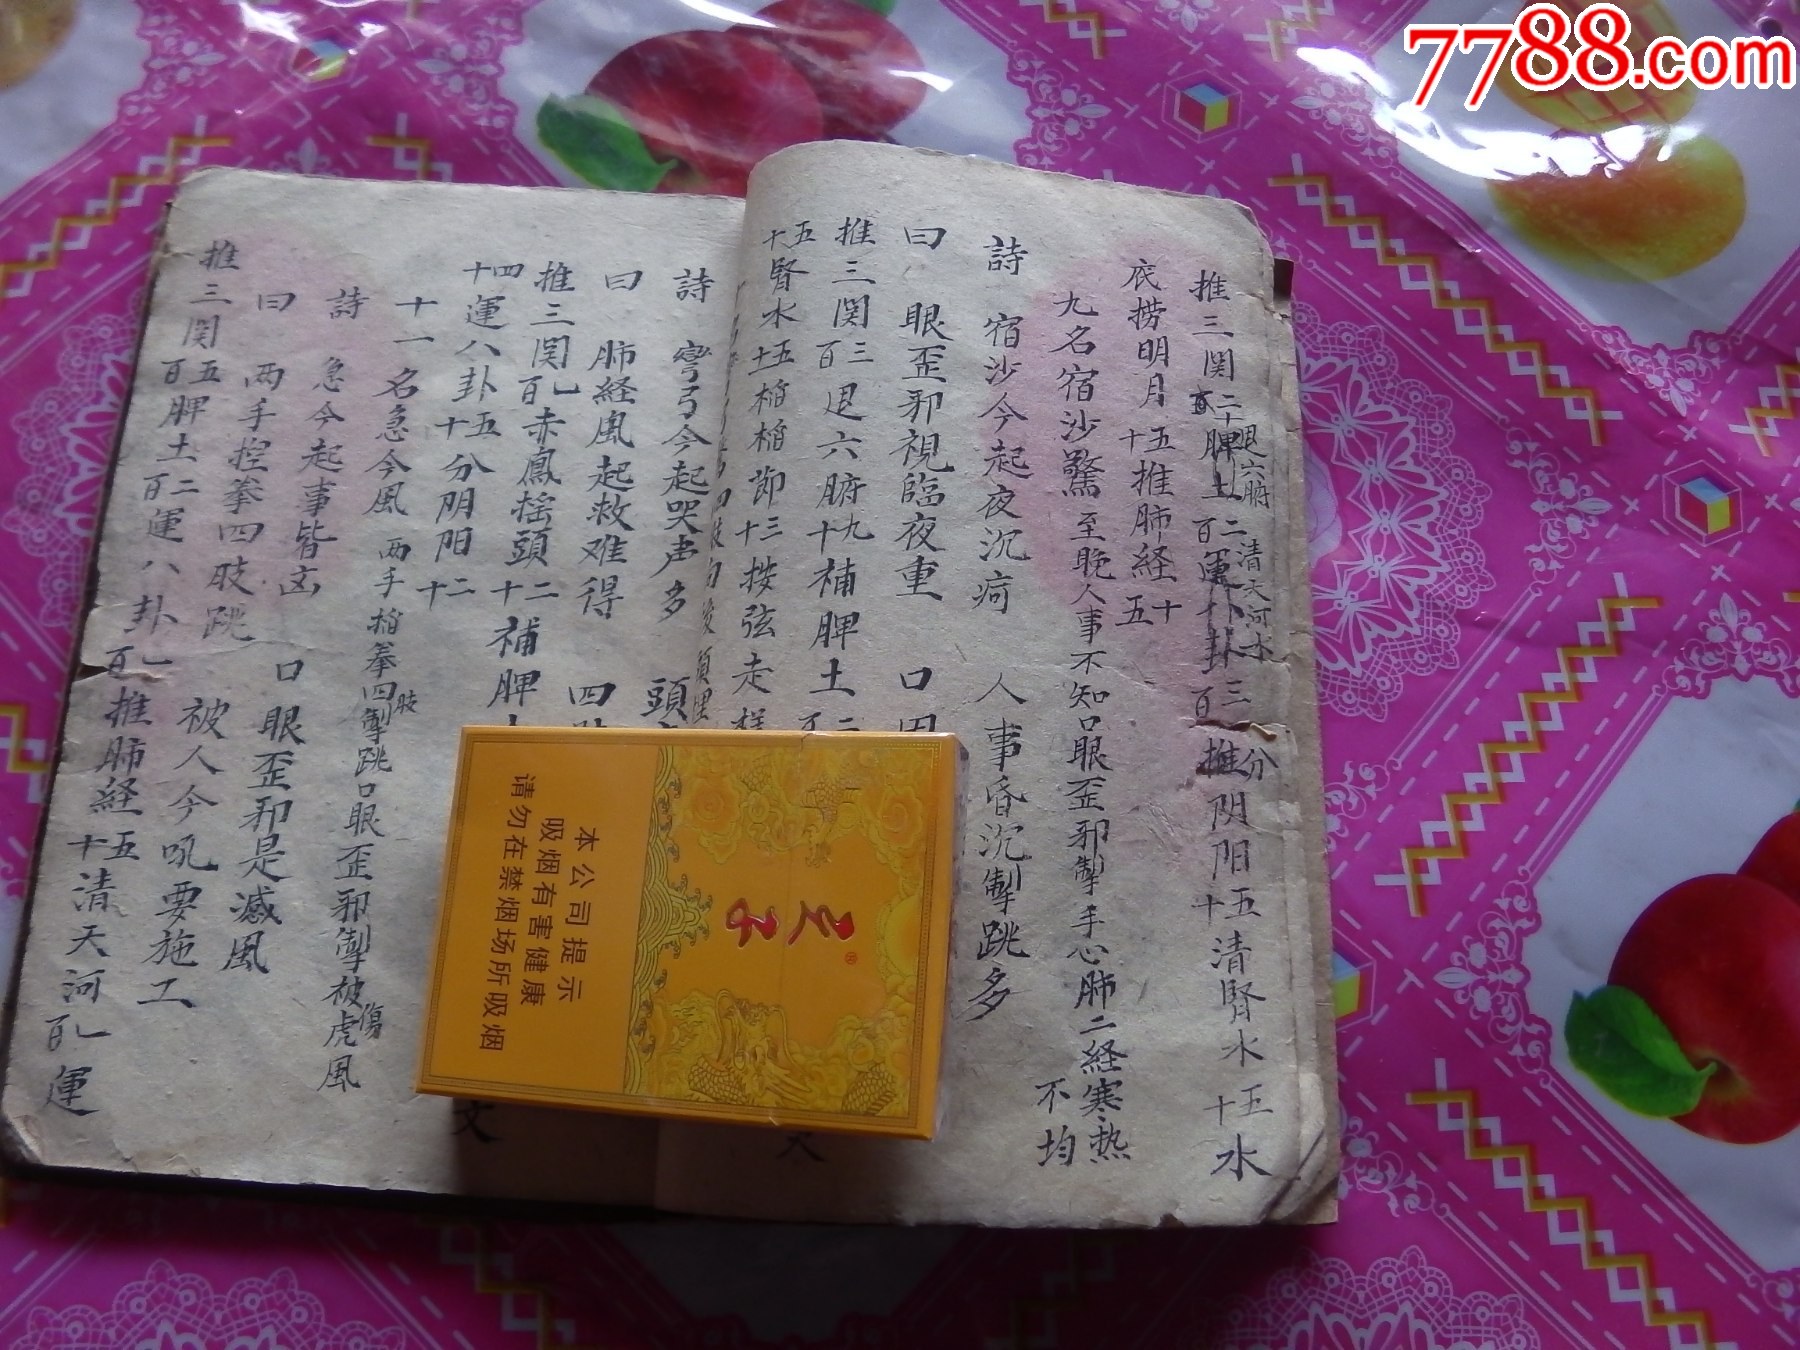 7788.com
推三関二十脾土二百運八卦三百推阴阳五十清腎水五十水
退六腑
清天河水
分
底捞明月五十推肺経十五
九名宿沙驚至晚人事不知口眼歪邪掣手心肺二経寒热
不均
詩 宿沙今起夜沉疴 人事昏沉掣跳多
曰 眼歪邪視臨夜重 口
推三関三百退六腑九十補脾土二
五十腎水五十掐節三十按弦走
詩 弯弓今起哭声多 頭
曰 肺経風起救难得 四
推三関一百赤鳳摇頭二十補脾
四十運八卦五十分阴阳二十
十一名急今風 两手掐拳四掣跳口眼歪邪掣被虎風
肢
傷
詩 急今起事皆凶 口眼歪邪是感風
曰 两手控拳四肢跳 被人今吼要施工
推三関五百脾土二百運八卦一百推肺経五十清天河一百運
本公司提示
吸烟有害健康
请勿在禁烟场所吸烟